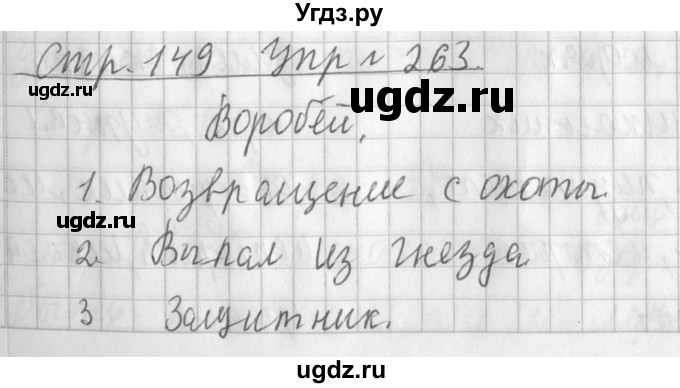 Угдз.ру
Стр. 149 Упр № 263.
Воробей.
1. Возвращение с охоты.
2. Выпал из гнезда
3 Защитник.
©ugdz.ru
©ugdz.ru
©ugdz.ru
©ugdz.ru
©ugdz.ru
ugdz.ru